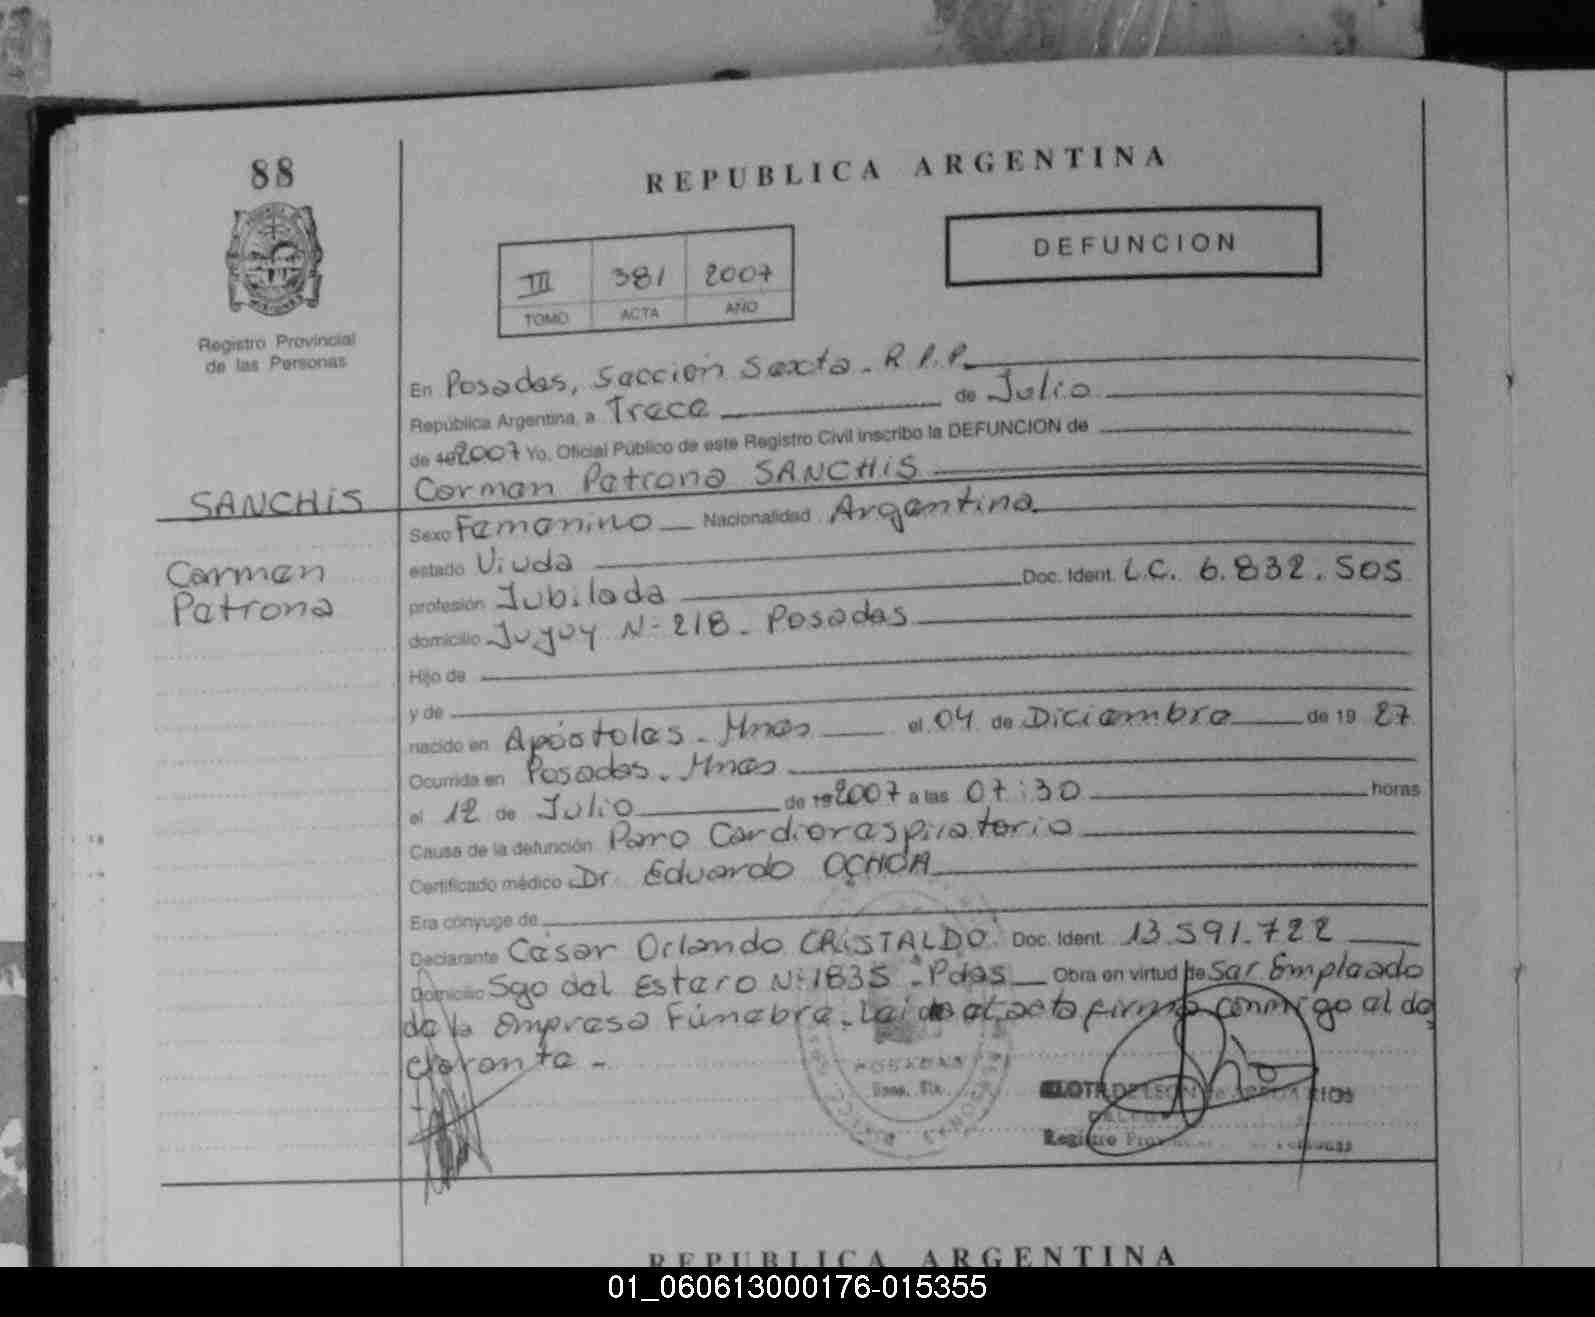 88
REPUBLICA ARGENTINA
DEFUNCION
III 381 2007
TOMO ACTA AÑO
Registro Provincial
de las Personas
En Posadas, Sección Sexta. R.P.P.
República Argentina, a Trece de Julio
de 19 2007 Yo, Oficial Público de este Registro Civil inscribo la DEFUNCION de
SANCHiS Carmen Petrona SANCHiS
Sexo Femenino Nacionalidad Argentina
Carmen
Petrona
estado Viuda
profesión Jubilada Doc. Ident. L.C. 6.832.505
domicilio Jujuy Nº 218 - Posadas
Hijo de
y de
nacido en Apóstoles - Mnes el 04 de Diciembre de 19 27
Ocurrida en Posadas - Mnes
el 12 de Julio de 19 2007 a las 07:30 horas
Causa de la defunción Paro Cardiorespiratorio
Certificado médico Dr. Eduardo OCHOA
Era cónyuge de
Declarante César Orlando CRiSTALDO Doc. Ident. 13.591.722
Domicilio Sgo del Estero Nº 1835 - Pdas Obra en virtud de Ser Empleado
de la Empresa Fúnebre. Leída el acta firma conmigo el de
clarante -
POSADAS
Registro
REPUBLICA ARGENTINA
01_060613000176-015355